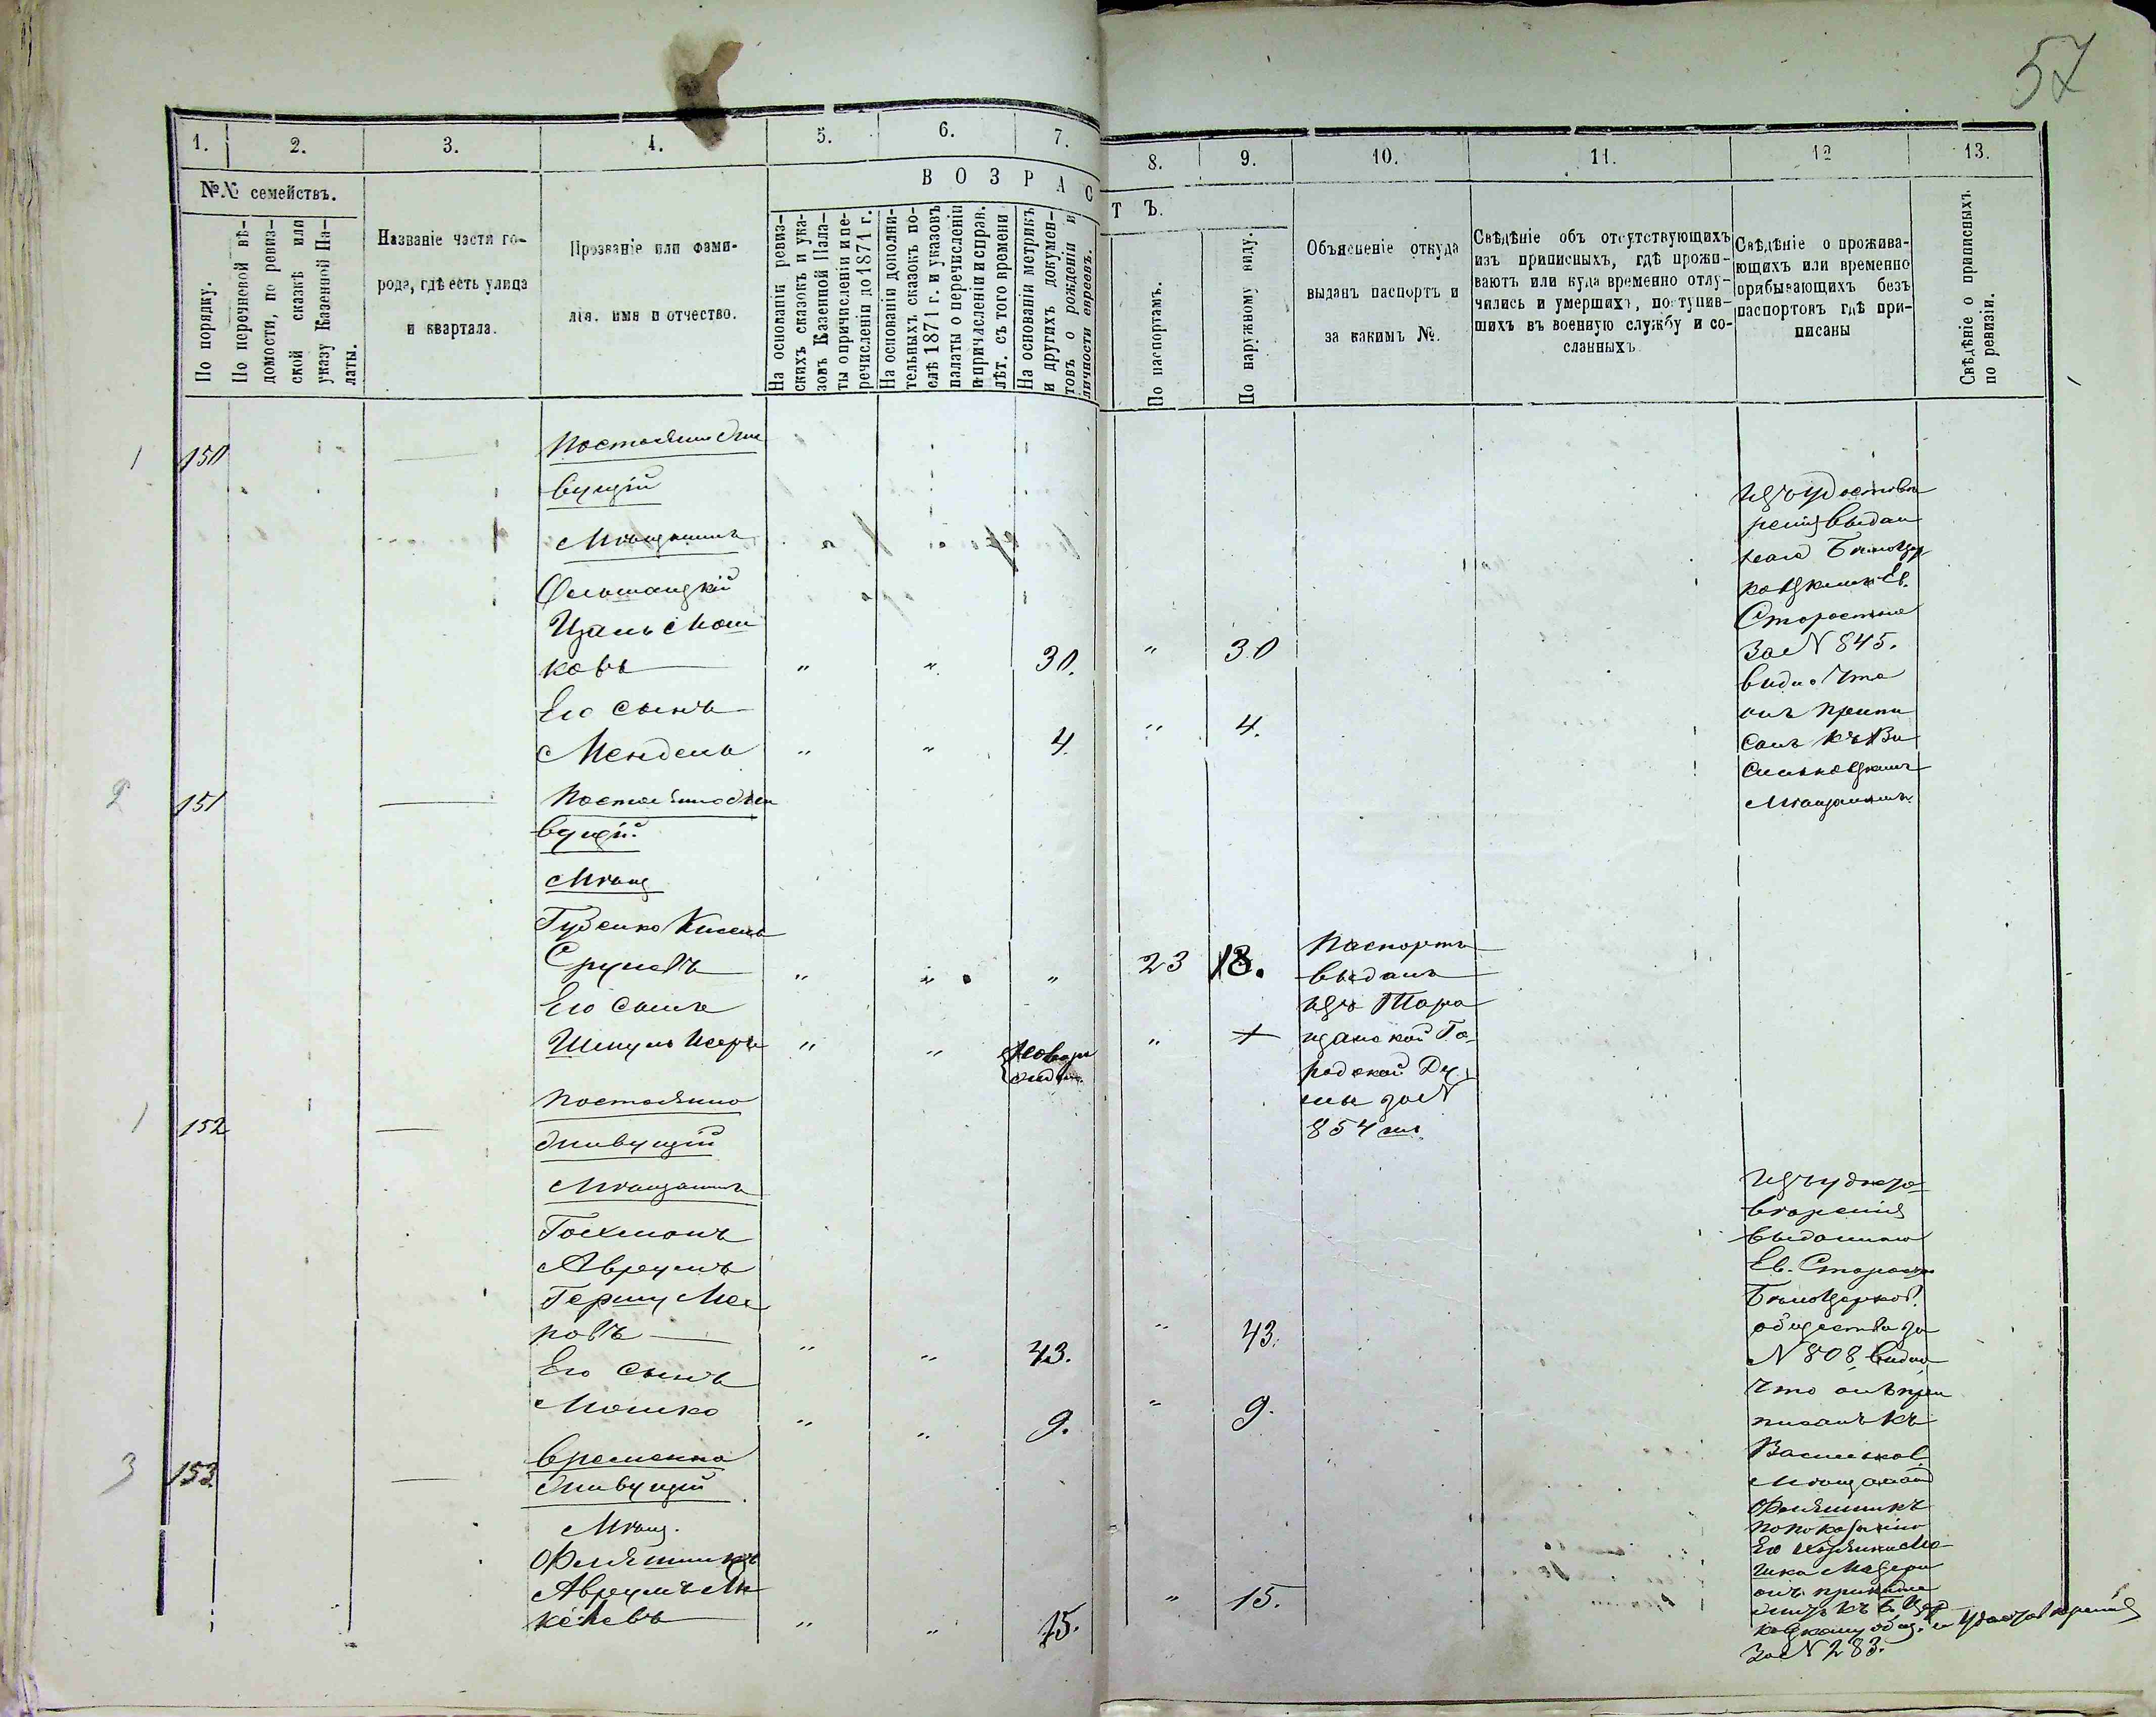 57
1. 2. 3. 4. 5. 6. 7. 8. 9. 10. 11. 12 13.
№№ семействъ.
По порядку.
По перечневой вѣ-
домости, по ревиз-
ской сказкѣ или
указу Казенной Па-
латы.
Названіе части го-
рода, гдѣ есть улица
и квартала.
Прозваніе или фами-
лія. имя и отчество.
ВОЗРАСТЪ.
На основаніи ревиз-
скихъ сказокъ и ука-
зовъ Казенной Пала-
ты о причисленіи и пе-
речисленіи до 1871 г.
На основаніи дополни-
тельныхъ сказокъ по-
слѣ 1871 г. и указовъ
палаты о перечисленіи
и причисленіи и справ.
лѣт. съ того времени
На основаніи метрикъ
и другихъ докумен-
товъ о рожденіи и
личности евреевъ.
По паспортамъ.
По наружному виду.
Объясненіе откуда
выданъ паспортъ и
за какимъ №.
Свѣдѣніе объ отсутствующихъ
изъ приписныхъ, гдѣ прожи-
ваютъ или куда временно отлу-
чились и умершихъ, поступив-
шихъ въ военную службу и со-
сланныхъ
Свѣдѣніе о прожива-
ющихъ или временно
прибывающихъ безъ
паспортовъ гдѣ при-
писаны
Свѣдѣніе о приписныхъ
по ревизіи.
1 150
Постоянно жи
вущій
Мѣщанинъ
Ольшанскій
Мош
ковъ " " 30. " 30
Его сынъ
Мендель " " 4. " 4.
Изъ удостовѣ
ренія выдан
наго Бѣлоцер
ковскимъ Ев.
Старостою
За № 845.
видно что
онъ припи
санъ къ Ва
сильковскимъ
Мѣщанамъ.
2 151
Постоянно жи
вущій.
Мѣщ
Гузенко
Сруловъ " " " 23 18.
Его сынъ
Шмуль " " "
Паспортъ
выданъ
изъ Тара
щанской Го
родской Ду
мы за №
854 мъ.
1 152
Постоянно
живущій
Мѣщанинъ
Гохманъ
Аврумъ
Гершу Ме
ровъ " " 43. " 43.
Его сынъ
Мошко " " 9. " 9.
Изъ удосто
вѣренія
выданнаго
Ев. Старост
Бѣлоцерков.
общества за
№ 808 видно
что онъ при
писанъ къ
Васильков.
3 153
Временно
живущій
Мѣщ.
Аврумъ
" " 15. " 15.
по показанію
Его
онъ
къ
удостовѣренія
За № 283.